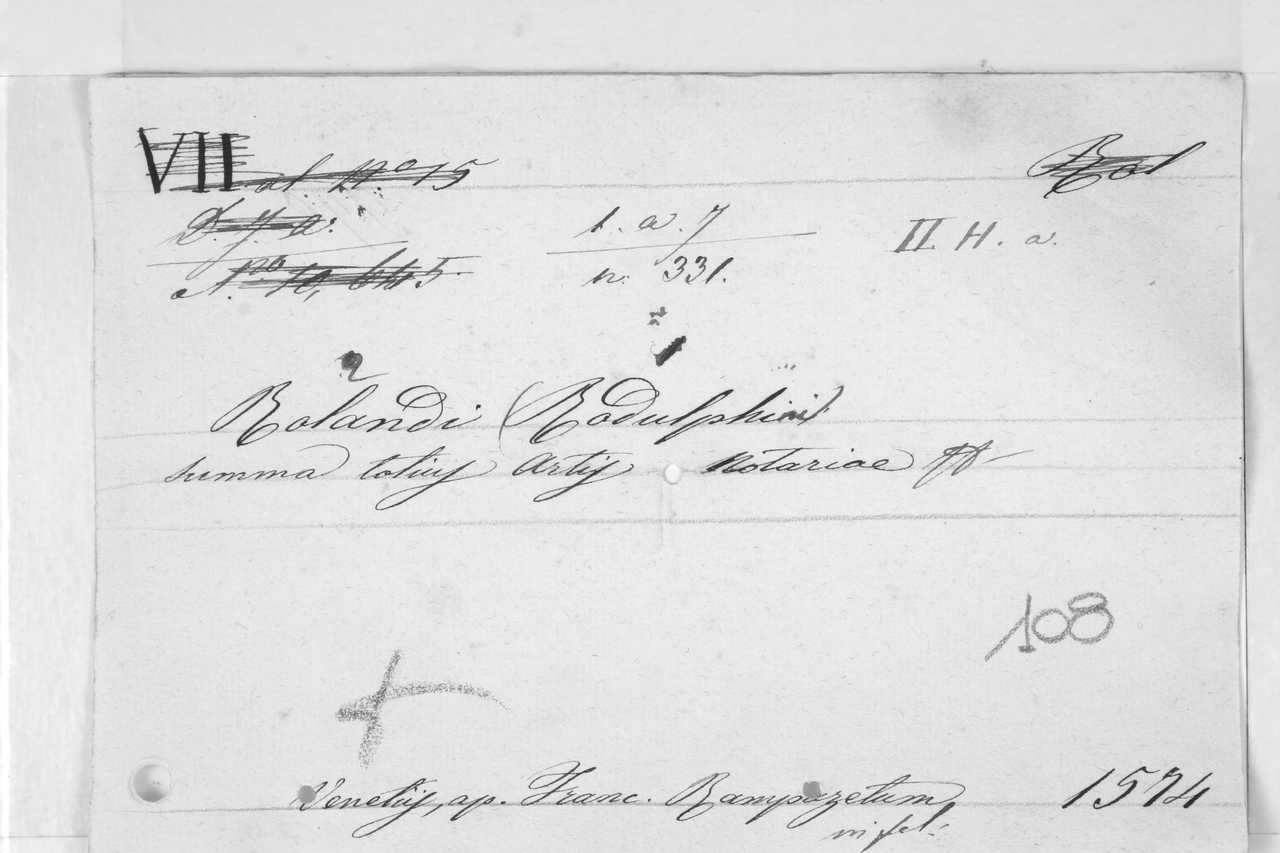 VII al. No 15 Rol
D. J. a: 1. a. 7 II H. a.
No 10,645. n. 331.
2 1
Rolandi (Rodulphini)
summa totius Artis Notariae
108
Venetiis, ap. Franc. Rampazetum 1574
in fol.